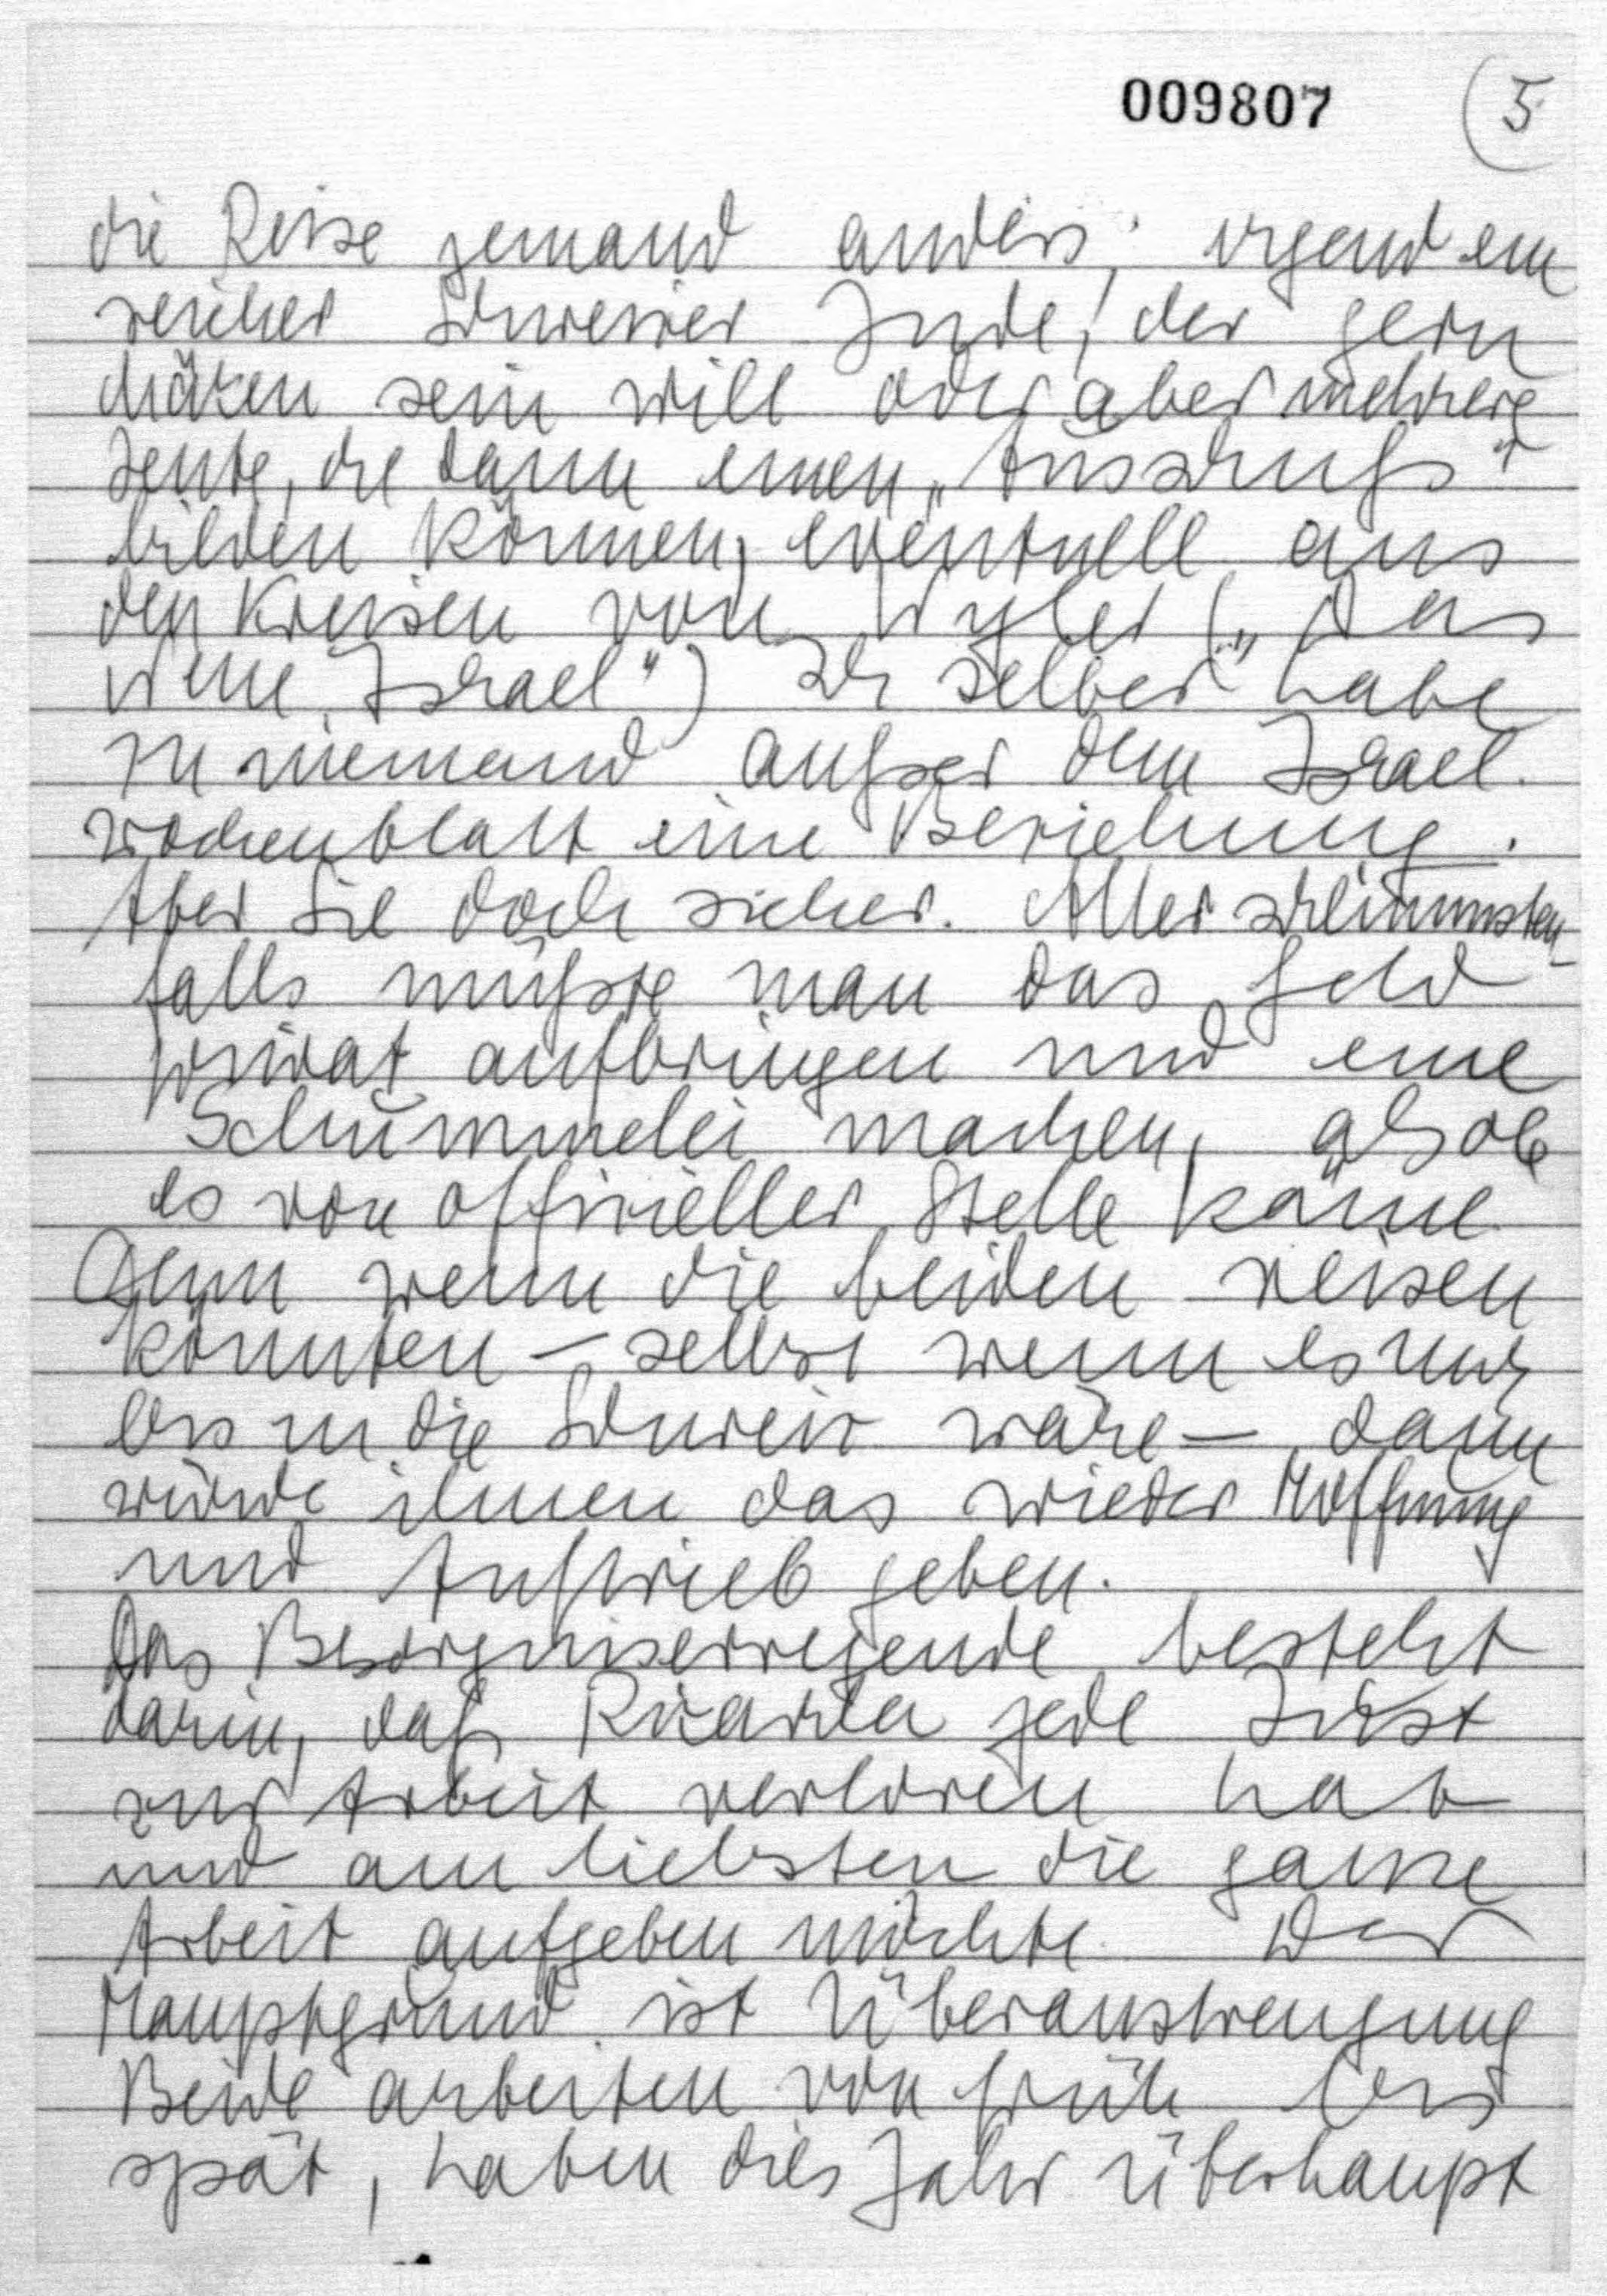 009807 5
die Reise jemand anders; irgend ein
reicher Schweizer Jude, der gern
Mäzen sein will oder aber mehrere
Leute, die dann einen „Ausschuß"
bilden können, eventuell aus
den Kreisen von Wyler („Das
Neue Israel") Ich selber habe
zu niemand außer dem Israel.
Wochenblatt eine Beziehung.
Aber Sie doch sicher. Aller schlimmsten-
falls müßte man das Geld
privat aufbringen und eine
Schummelei machen, als ob
es von offizieller Stelle käme
Denn wenn die beiden reisen
könnten – selbst wenn es nur
bis in die Schweiz wäre – dann
würde ihnen das wieder Hoffnung
und Auftrieb geben.
Das Besorgniserregende besteht
darin, daß Ricarda jede Lust
zur Arbeit verloren hat
und am liebsten die ganze
Arbeit aufgeben möchte. Der
Hauptgrund ist Überanstrengung
Beide arbeiten von früh bis
spät, haben dies Jahr überhaupt